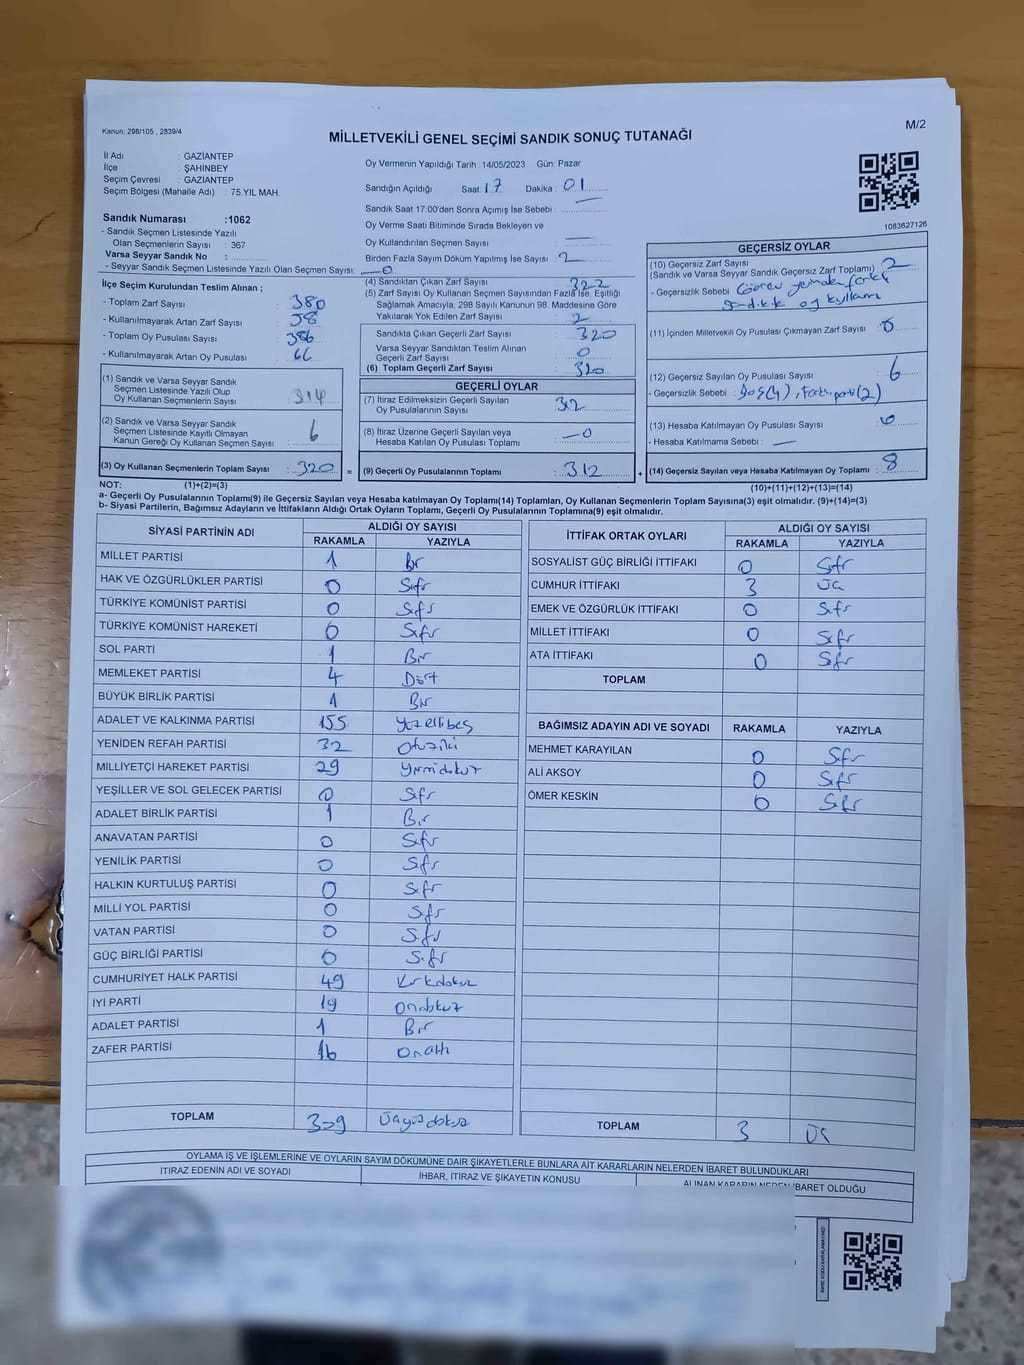 Kanun; 298/105 , 2839/4
M/2
MİLLETVEKİLİ GENEL SEÇİMİ SANDIK SONUÇ TUTANAĞI
İl Adı : GAZİANTEP
İlçe : ŞAHİNBEY
Seçim Çevresi : GAZİANTEP
Seçim Bölgesi (Mahalle Adı) : 75.YIL MAH.
Sandık Numarası :1062
- Sandık Seçmen Listesinde Yazılı
Olan Seçmenlerin Sayısı : 367
Varsa Seyyar Sandık No :
- Seyyar Sandık Seçmen Listesinde Yazılı Olan Seçmen Sayısı: 0
Oy Vermenin Yapıldığı Tarih :14/05/2023 Gün: Pazar
Sandığın Açıldığı Saat: 17 Dakika : 01
Sandık Saat 17.00'den Sonra Açımış İse Sebebi :
Oy Verme Saati Bitiminde Sırada Bekleyen ve
Oy Kullandırılan Seçmen Sayısı :
Birden Fazla Sayım Döküm Yapılmış İse Sayısı : 2
1083627126
İlçe Seçim Kurulundan Teslim Alınan ;
- Toplam Zarf Sayısı : 380
- Kullanılmayarak Artan Zarf Sayısı : 58
- Toplam Oy Pusulası : 386
- Kullanılmayarak Artan Oy Pusulası : 66
(1) Sandık ve Varsa Seyyar Sandık
Seçmen Listesinde Yazılı Olup
Oy Kullanan Seçmenlerin Sayısı : 314
(2) Sandık ve Varsa Seyyar Sandık
Seçmen Listesinde Kayıtlı Olmayan
Kanun Gereği Oy Kullanan Seçmen Sayısı : 6
(3) Oy Kullanan Seçmenlerin Toplam Sayısı : 320 =
(4) Sandıktan Çıkan Zarf Sayısı : 322
(5) Zarf Sayısı Oy Kullanan Seçmen Sayısından Fazla İse, Eşitliği
Sağlamak Amacıyla, 298 Sayılı Kanunun 98. Maddesine Göre
Yakılarak Yok Edilen Zarf Sayısı : 2
Sandıkta Çıkan Geçerli Zarf Sayısı : 320
Varsa Seyyar Sandıktan Teslim Alınan
Geçerli Zarf Sayısı : 0
(6) Toplam Geçerli Zarf Sayısı : 320
GEÇERLİ OYLAR
(7) İtiraz Edilmeksizin Geçerli Sayılan
Oy Pusulalarının Sayısı : 312
(8) İtiraz Üzerine Geçerli Sayılan veya
Hesaba Katılan Oy Pusulası Toplamı : 0
(9) Geçerli Oy Pusulalarının Toplamı : 312 +
GEÇERSİZ OYLAR
(10) Geçersiz Zarf Sayısı
(Sandık ve Varsa Seyyar Sandık Geçersiz Zarf Toplamı) : 2
- Geçersizlik Sebebi : Görev
sandıkta oy kullanım
(11) İçinden Milletvekili Oy Pusulası Çıkmayan Zarf Sayısı : 0
(12) Geçersiz Sayılan Oy Pusulası Sayısı : 6
- Geçersizlik Sebebi : Boş(4), Farklı parti(2)
(13) Hesaba Katılmayan Oy Pusulası Sayısı : 0
- Hesaba Katılmama Sebebi : —
(14) Geçersiz Sayılan veya Hesaba Katılmayan Oy Toplamı : 8
NOT: (1)+(2)=(3)
(10)+(11)+(12)+(13)=(14)
a- Geçerli Oy Pusulalarının Toplamı(9) ile Geçersiz Sayılan veya Hesaba katılmayan Oy Toplamı(14) Toplamları, Oy Kullanan Seçmenlerin Toplam Sayısına(3) eşit olmalıdır. (9)+(14)=(3)
b- Siyasi Partilerin, Bağımsız Adayların ve İttifakların Aldığı Ortak Oyların Toplamı, Geçerli Oy Pusulalarının Toplamına(9) eşit olmalıdır.
SİYASİ PARTİNİN ADI ALDIĞI OY SAYISI
RAKAMLA YAZIYLA
MİLLET PARTİSİ 1 Bir
HAK VE ÖZGÜRLÜKLER PARTİSİ 0 Sıfır
TÜRKİYE KOMÜNİST PARTİSİ 0 Sıfır
TÜRKİYE KOMÜNİST HAREKETİ 0 Sıfır
SOL PARTİ 1 Bir
MEMLEKET PARTİSİ 4 Dört
BÜYÜK BİRLİK PARTİSİ 1 Bir
ADALET VE KALKINMA PARTİSİ 155 yüzellibeş
YENİDEN REFAH PARTİSİ 32 Otuziki
MİLLİYETÇİ HAREKET PARTİSİ 29 yirmidokuz
YEŞİLLER VE SOL GELECEK PARTİSİ 0 Sıfır
ADALET BİRLİK PARTİSİ 1 Bir
ANAVATAN PARTİSİ 0 Sıfır
YENİLİK PARTİSİ 0 Sıfır
HALKIN KURTULUŞ PARTİSİ 0 Sıfır
MİLLİ YOL PARTİSİ 0 Sıfır
VATAN PARTİSİ 0 Sıfır
GÜÇ BİRLİĞİ PARTİSİ 0 Sıfır
CUMHURİYET HALK PARTİSİ 49 Kırkdokuz
İYİ PARTİ 19 Ondokuz
ADALET PARTİSİ 1 Bir
ZAFER PARTİSİ 16 Onaltı
TOPLAM 309 Üçyüzdokuz
İTTİFAK ORTAK OYLARI ALDIĞI OY SAYISI
RAKAMLA YAZIYLA
SOSYALİST GÜÇ BİRLİĞİ İTTİFAKI 0 Sıfır
CUMHUR İTTİFAKI 3 Üç
EMEK VE ÖZGÜRLÜK İTTİFAKI 0 Sıfır
MİLLET İTTİFAKI 0 Sıfır
ATA İTTİFAKI 0 Sıfır
TOPLAM
BAĞIMSIZ ADAYIN ADI VE SOYADI RAKAMLA YAZIYLA
MEHMET KARAYILAN 0 Sıfır
ALİ AKSOY 0 Sıfır
ÖMER KESKİN 0 Sıfır
TOPLAM 3 Üç
OYLAMA İŞ VE İŞLEMLERİNE VE OYLARIN SAYIM DÖKÜMÜNE DAİR ŞİKAYETLERLE BUNLARA AİT KARARLARIN NELERDEN İBARET BULUNDUKLARI
İTİRAZ EDENİN ADI VE SOYADI İHBAR, İTİRAZ VE ŞİKAYETİN KONUSU ALINAN KARARIN NEDEN İBARET OLDUĞU